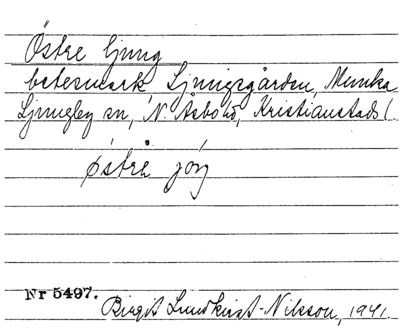 Östre ljung
betesmark Ljungsgården, Munka
Ljungby sn, N. Åsbo hd, Kristianstads l.
östrə jöŋ
Nr 5497.
Birgit Lundkvist-Nilsson, 1941.